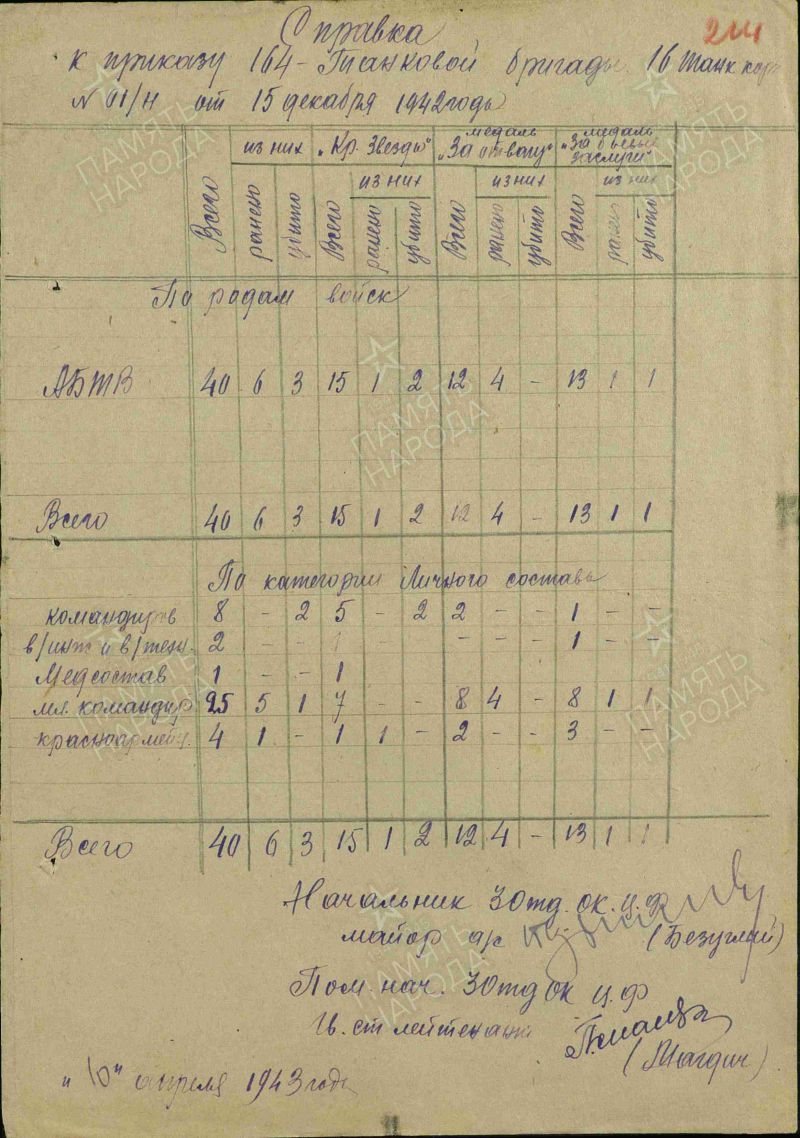 Справка 211
к приказу 164 - Танковой бригады 16 танк кор
№ 01/н от 15 декабря 1942 годы
из них „Кр. Звезды" медаль „За отвагу" медаль „За боевые заслуги"
из них из них из них
Всего ранено убито Всего ранено убито Всего ранено убито Всего ранено убито
По родам войск
АБТВ 40 6 3 15 1 2 12 4 - 13 1 1
Всего 40 6 3 15 1 2 12 4 - 13 1 1
По категории Личного состава
командиров 8 - 2 5 - 2 2 - - 1 - -
в/инт и в/техн. 2 - - 1 - - - - - 1 - -
Медсостав 1 - - 1
мл. командир 25 5 1 7 - - 8 4 - 8 1 1
красноармейц. 4 1 - 1 1 - 2 - - 3 - -
Всего 40 6 3 15 1 2 12 4 - 13 1 1
Начальник 3 отд. ок. ц. ф
майор а/с (Безуглый)
Пом. нач. 3 отд ок ц. ф
Гв. ст лейтенант
(Магдич)
"10" апреля 1943 годы
ПАМЯТЬ НАРОДА
ПАМЯТЬ НАРОДА
ПАМЯТЬ НАРОДА
ПАМЯТЬ НАРОДА
ПАМЯТЬ НАРОДА
ПАМЯТЬ НАРОДА